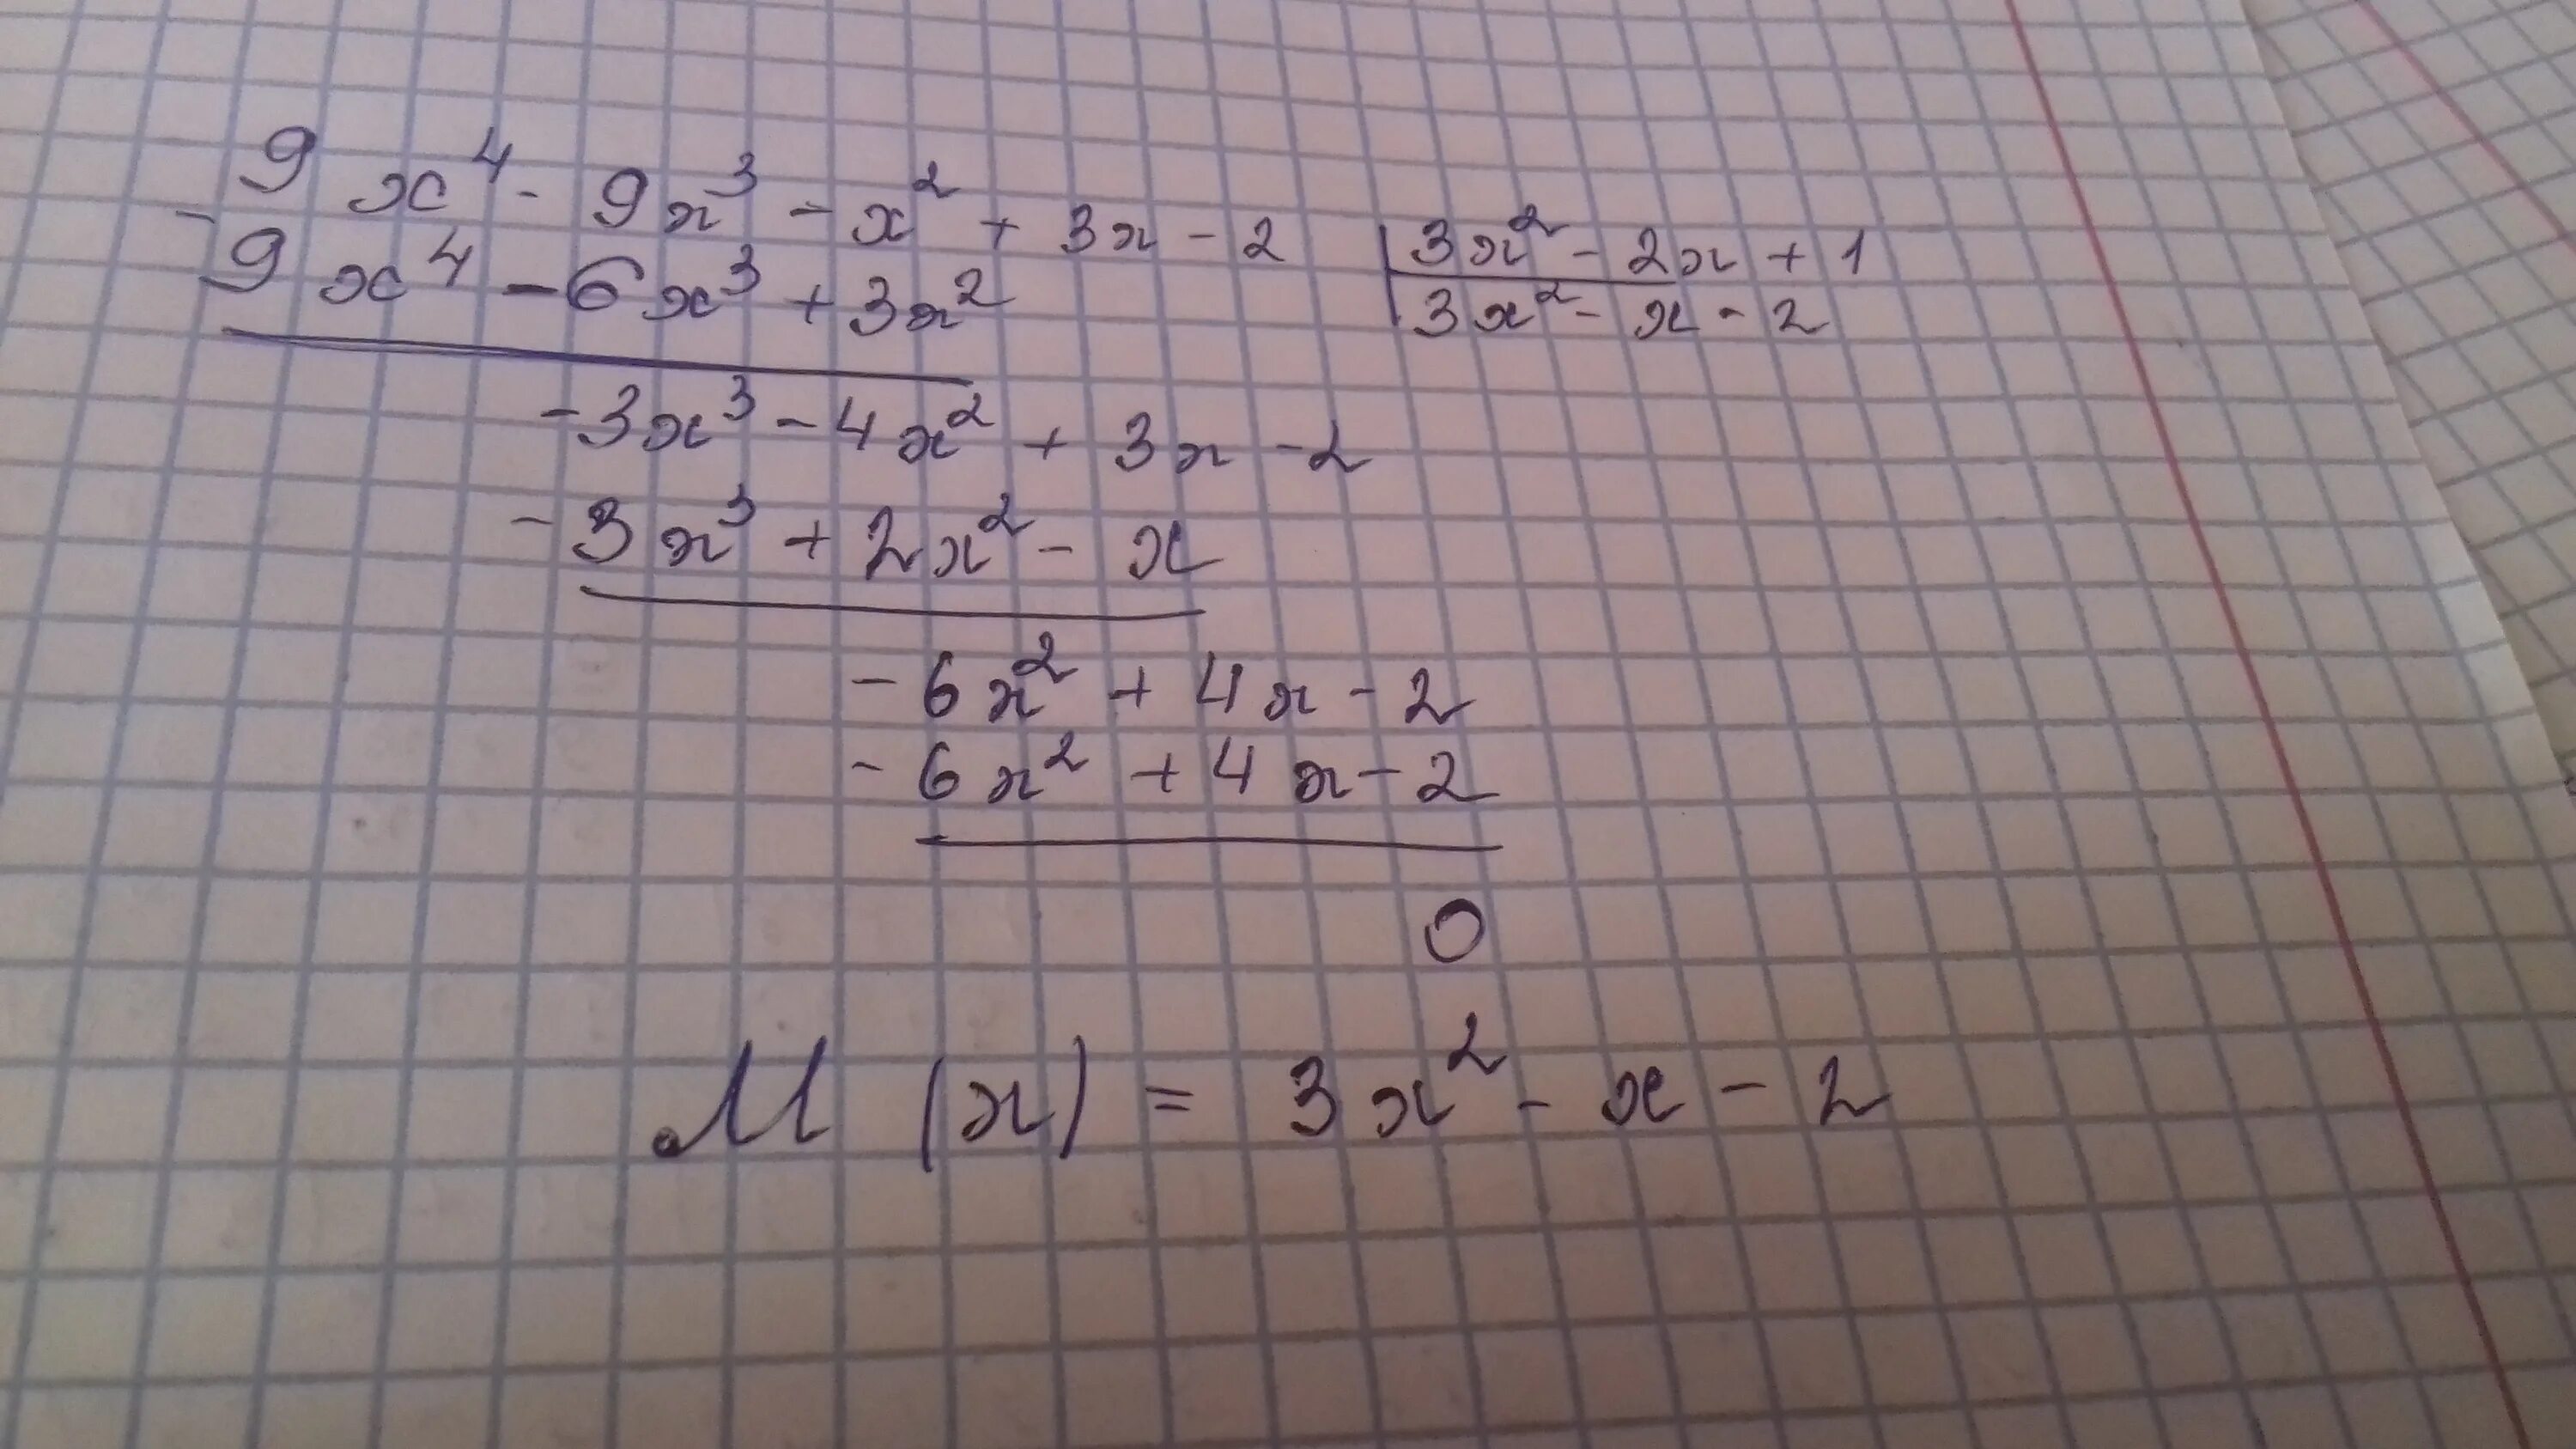 9x⁴ - 9x³ - x² + 3x - 2 | 3x² - 2x + 1
- 9x⁴ - 6x³ + 3x² | 3x² - x - 2
-3x³ - 4x² + 3x - 2
- 3x³ + 2x² - x
- 6x² + 4x - 2
- 6x² + 4x - 2
0
M (x) = 3x² - x - 2